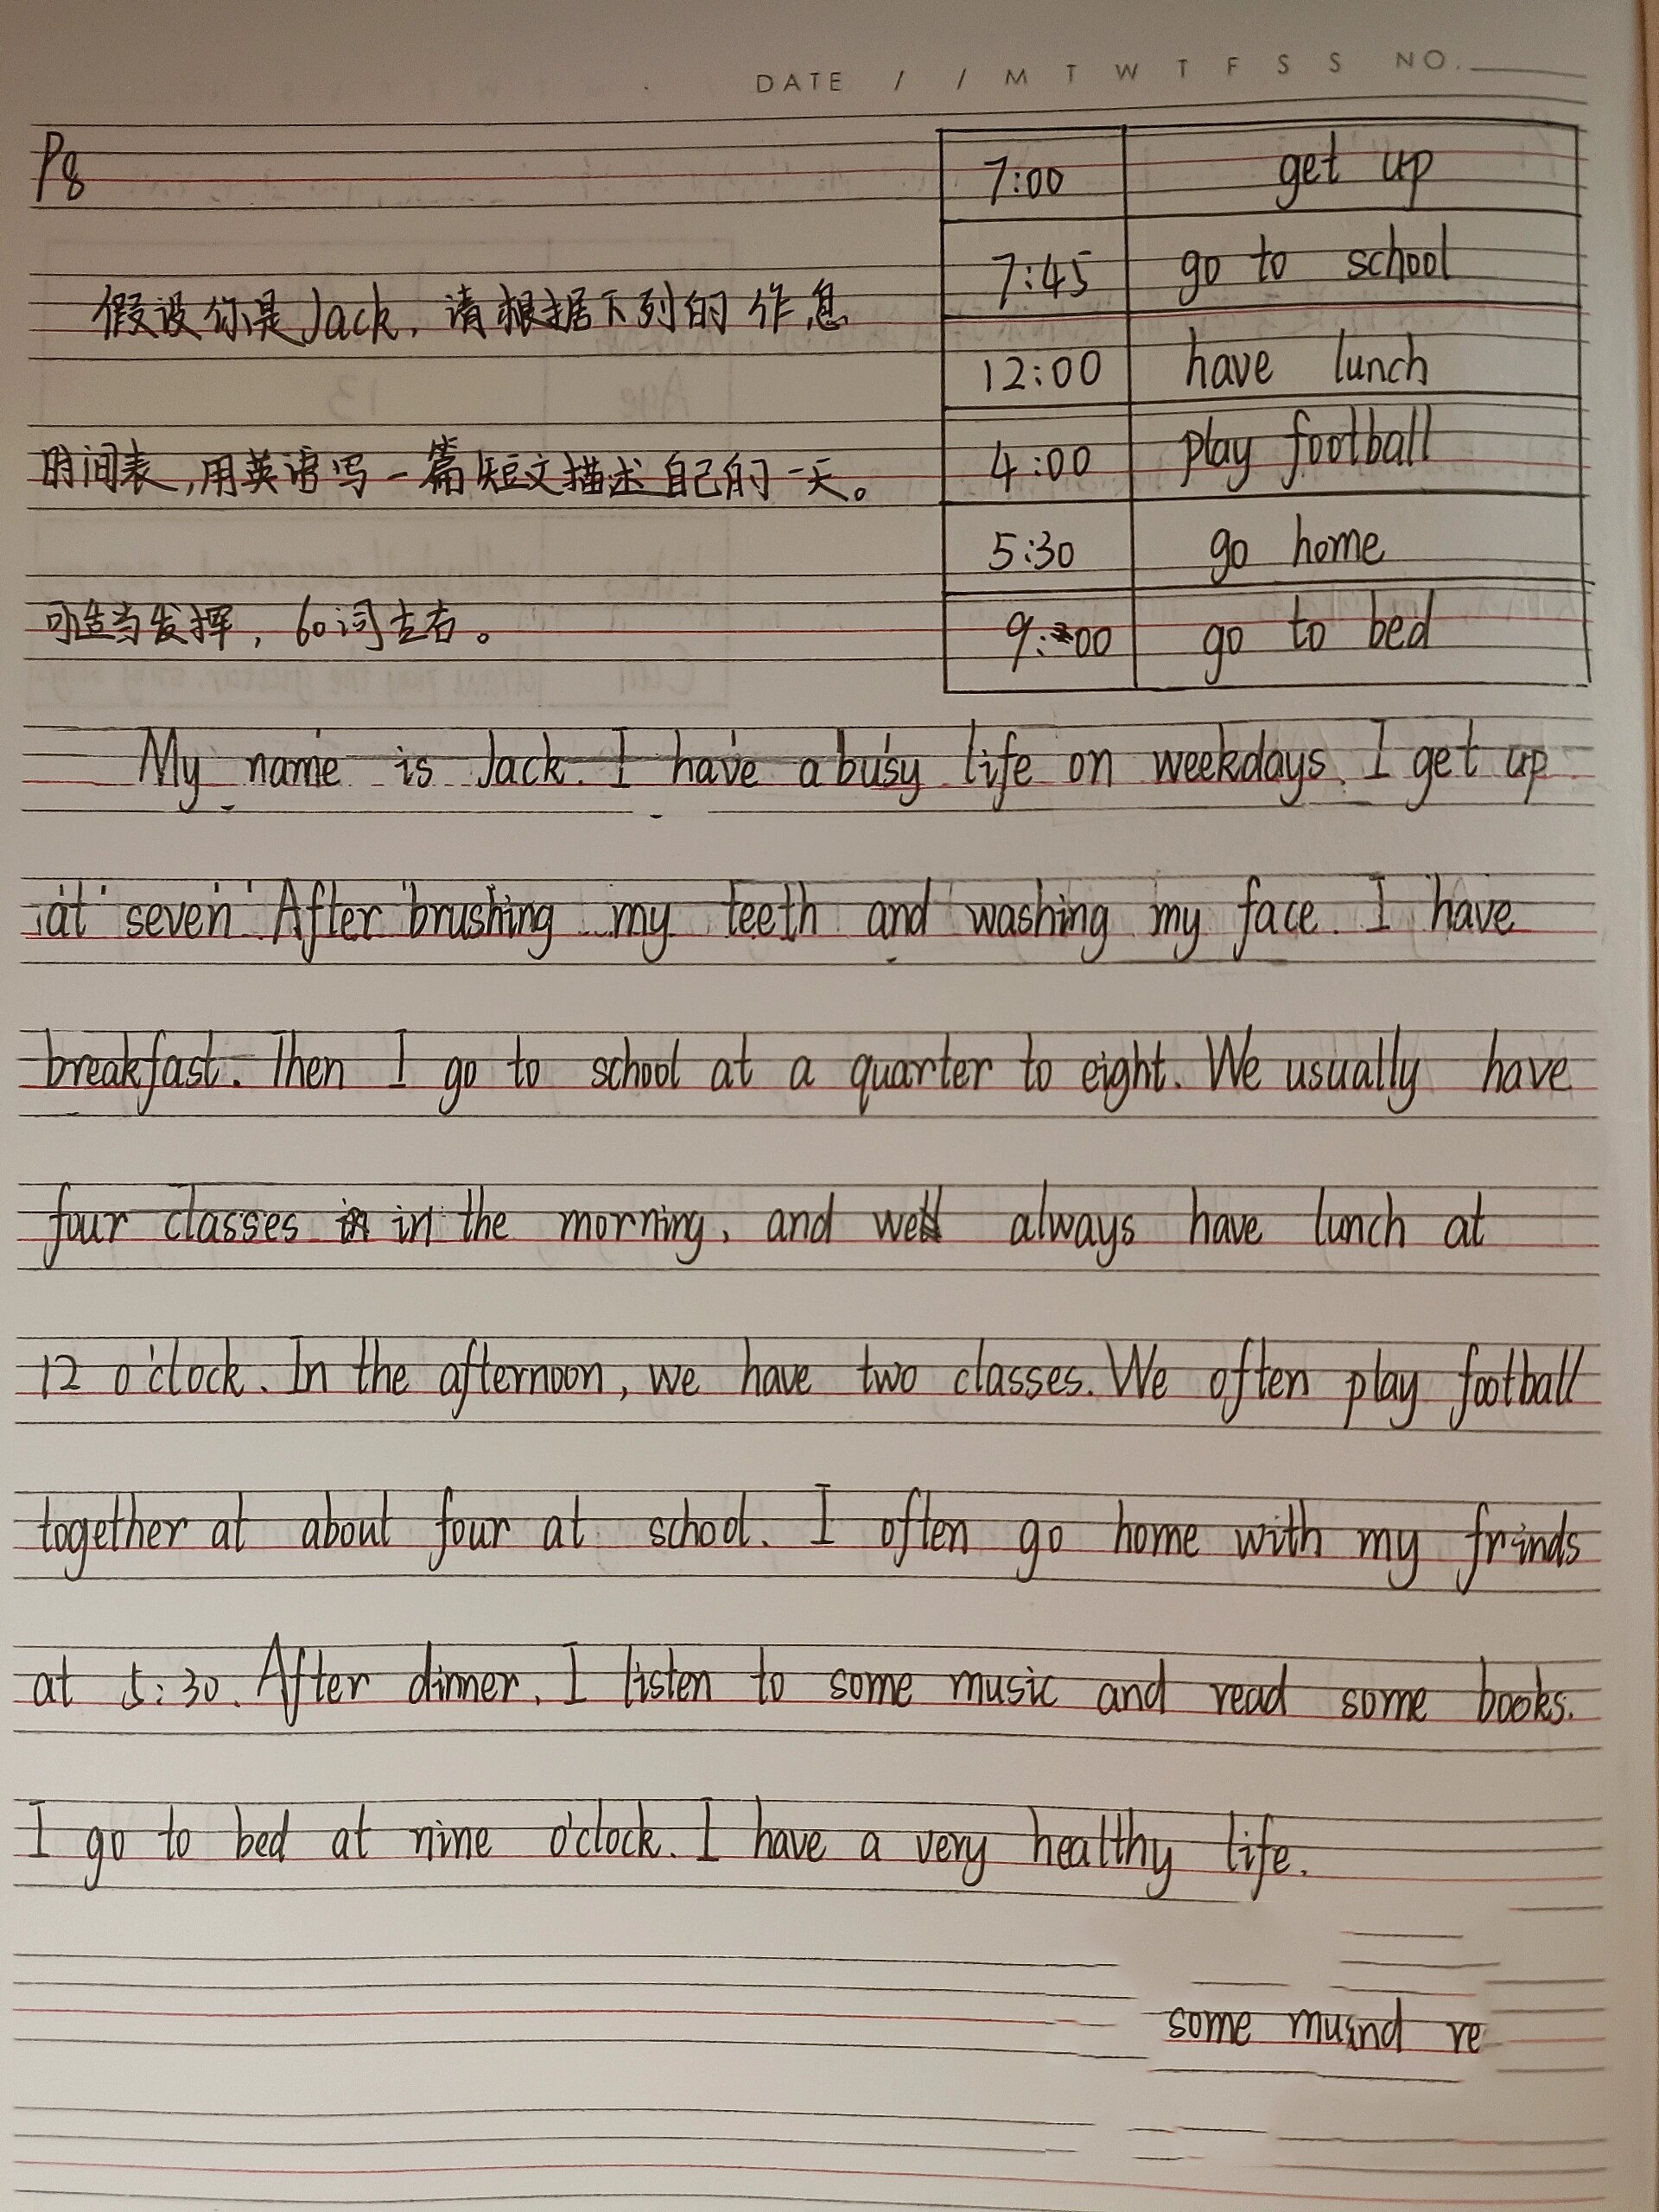 DATE / / M T W T F S S NO.
P8
7:00 get up
7:45 go to school
12:00 have lunch
4:00 play football
5:30 go home
9:00 go to bed
假设你是Jack,请根据下列的作息
时间表,用英语写一篇短文描述自己的一天。
可适当发挥,60词左右。
My name is Jack. I have a busy life on weekdays. I get up
at seven After brushing my teeth and washing my face. I have
breakfast. Then I go to school at a quarter to eight. We usually have
four classes in the morning, and we always have lunch at
12 o'clock. In the afternoon, we have two classes. We often play football
together at about four at school. I often go home with my frinds
at 5:30. After dinner, I listen to some music and read some books.
I go to bed at nine o'clock. I have a very healthy life.
some musnd re